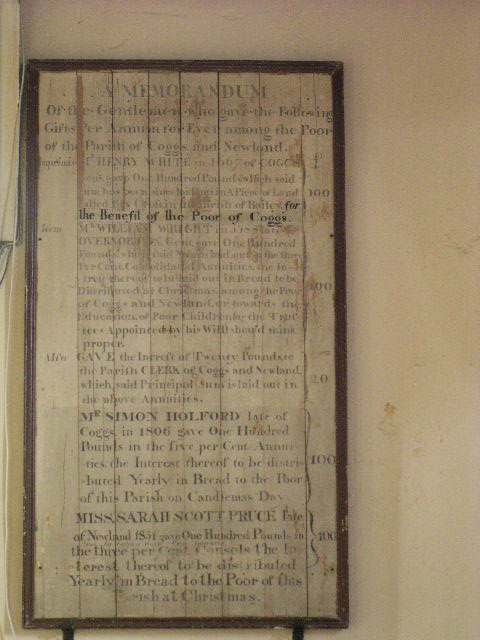 A MEMORANDUM
Of the Gentlemen who gave the Following
Gifts Per Annum for Ever among the Poor
of the Parish of Coggs and Newland.
Imprimis Mr HENRY WHITE in 1667 of COGGS £
Gent. gave One Hundred Pounds which said
Sum has been since laid out in A Piece of Land 100
called Croft in the Parish of for
the Benefit of the Poor of Coggs.
Item Mr WILLIAM WRIGHT in late of
Gent. gave One Hundred
Pounds which said Sum is laid out in the three
Per Cent. Consolidated Annuities, the In-
trest thereof to be laid out in Bread to be 100
Distributed at Christmas among the Poor
of Coggs and Newland, or towards the
Education of Poor Children as the Trus-
tees Appointed by his Will should think
proper.
Also GAVE the Intrest of Twenty Pounds, to
the Parish CLERK of Coggs and Newland, 20
which said Principal Sum is laid out in
the above Annuities.
Mr SIMON HOLFORD late of
Coggs, in 1806 gave One Hundred
Pounds in the five per Cent. Annui-
ties, the Interest thereof to be distri- 100
-buted Yearly in Bread to the Poor
of this Parish on Candlemas Day.
MISS SARAH SCOTT PRUCE late
of Newland 1851 gave One Hundred Pounds in 100
the three per Cent. Consols the In-
terest thereof to be distributed
Yearly in Bread to the Poor of this
Parish at Christmas.